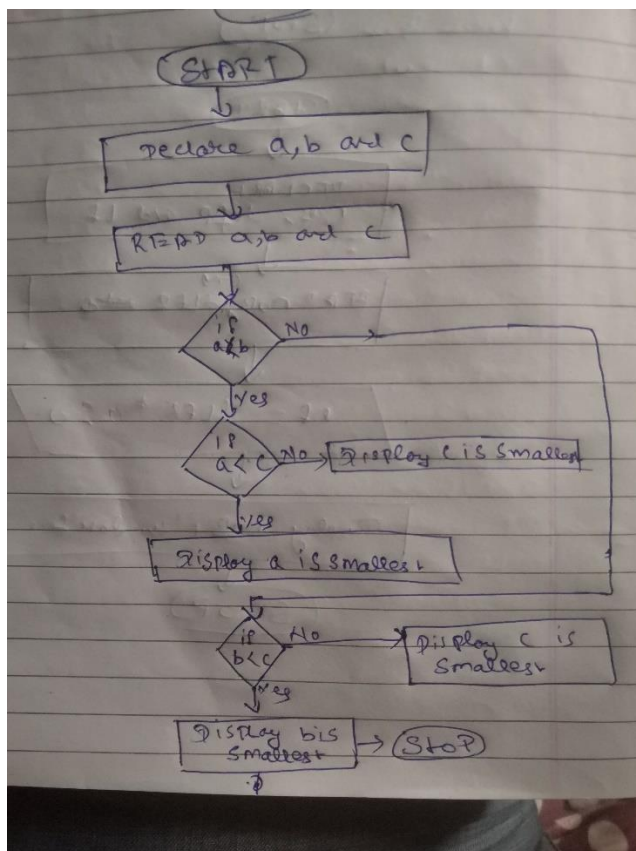 START
Declare a, b and c
READ a, b and c
if
a<b
No
Yes
if
a < c
No
Display c is smallest
Yes
Display a is smallest
if
b<c
No
Display c is
smallest
Yes
Display b is
smallest
STOP